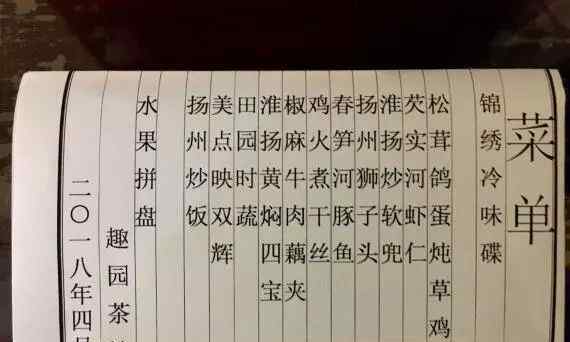 菜单
锦绣冷味碟
松茸鸽蛋炖草鸡
芡实河虾仁
淮扬炒软兜
扬州狮子头
春笋河豚鱼
鸡火煮干丝
椒麻牛肉藕夹
淮扬黄焖四宝
田园时蔬
美点映双辉
扬州炒饭
水果拼盘
趣园茶
二〇一八年四月